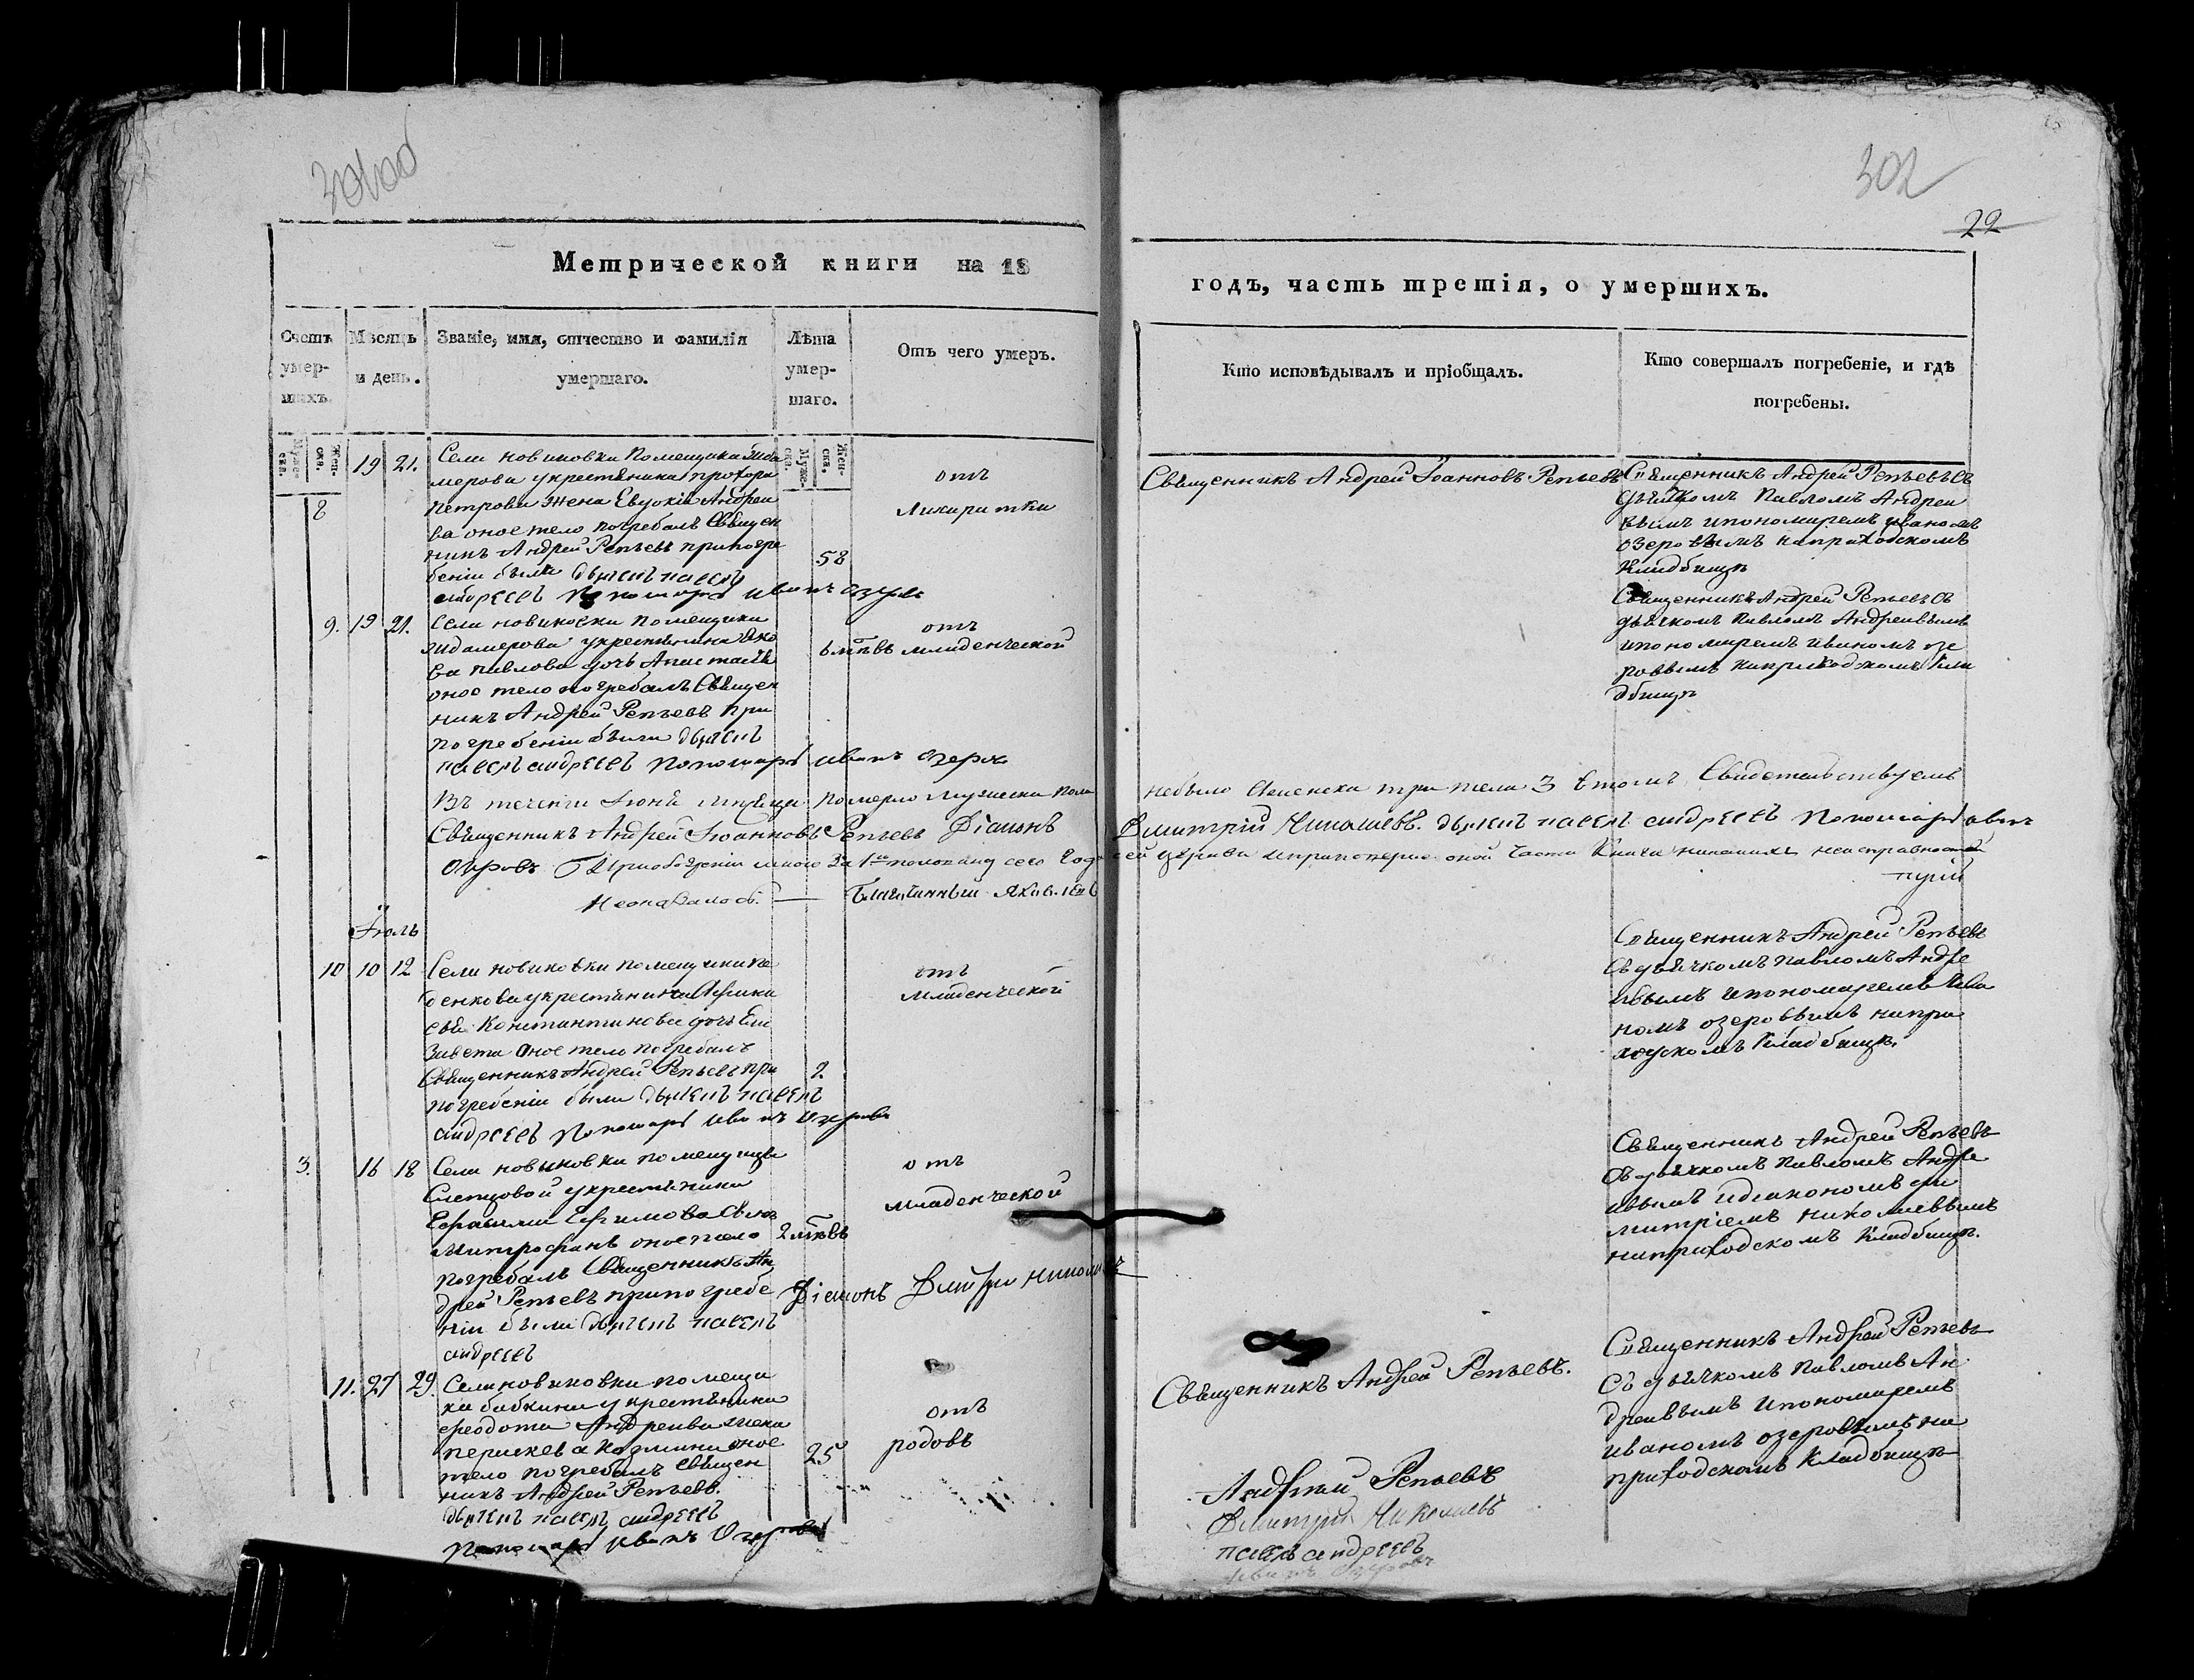 302
22
Метрической книги на 18
годъ, часть третія, о умершихъ.
Счетъ умер-шихъ.
Мѣсяцъ и день.
Званіе, имя, отчество и фамилія умершаго.
Лѣта умер-шаго.
Отъ чего умеръ.
Кто исповѣдывалъ и пріобщалъ.
Кто совершалъ погребеніе, и гдѣ погребены.
Муже-ска.
Жен-ска.
Муже-ска.
Жен-ска.
8
19 21.
Села новиковки помещика
мерова укрестьянина
петрова жена Евдокія Андрее
ва оное тело погребалъ Священ
никъ Андрей Репьевъ припогре
беніи были дьячекъ павелъ
андреевъ Пономарь иванъ озеровъ
58
отъ
Священникъ Андрей Іоанновъ Репьевъ
Священникъ Андрей Репьевъ Съ
дьячкомъ Павломъ Андрее
вымъ ипономаремъ иваномъ
озеровымъ наприходскомъ
кладбищѣ
9. 19 21.
Села новиковки помещика
укрестьянина Яко
ва павлова дочь Анастасія
оное тело погребалъ Священ
никъ Андрей Репьевъ при
погребеніи были дьячекъ
павелъ андреевъ Пономарь иванъ озеровъ
отъ
младенческой
Священникъ Андрей Репьевъ Съ
дьячкомъ Павломъ Андреевымъ
ипономаремъ иваномъ озе
ровымъ наприходскомъ кла
дбищѣ
Въ теченіи Іюня месяца померло мужеска пола небыло Аженска три тела 3 втомъ Свидетельствуемъ
Священникъ Андрей Іоанновъ Репьевъ Діаконъ Дмитрій Николаевъ. дьячекъ павелъ андреевъ Пономарь иванъ
Озеровъ
За 1ю половину сего Года сей церкви оной части Книги никакихъ неисправностей
Неоказалось. Благочинный Яковлевъ
Іюль
10 10 12
Села новиковки помещика
укрестьянина
Константинова дочь Ели
завета оное тело погребалъ
Священникъ Андрей Репьевъ при
погребеніи были дьячекъ павелъ
андреевъ Пономарь иванъ озеровъ
2.
отъ
младенческой
Священникъ Андрей Репьевъ
Съ дьячкомъ павломъ Андре
евымъ ипономаремъ Ива
номъ озеровымъ напри
ходскомъ кладбищѣ.
3. 16 18
Села новиковки помещицы
Слепцовой укрестьянина
Ефимова Сынъ
Митрофанъ оное тело
погребалъ Священникъ Ан
дрей Репьевъ припогребе
ніи были дьячекъ павелъ
андреевъ
Діаконъ Дмитри николаевъ
отъ
младенческой
Священникъ Андрей Репьевъ
Съ дьячкомъ Павломъ Андре
евымъ идіакономъ Ди
митріемъ николаевымъ
наприходскомъ кладбищѣ.
11. 27 29.
Села новиковки помещи
ка бабкина укрестьянина
феодота Андреева жена
оное
тело погребалъ Священ
никъ Андрей Репьевъ.
дьячекъ павелъ андреевъ
Пономарь иванъ Озеровъ
25
отъ
родовъ
Священникъ Андрей Репьевъ.
Священникъ Андрей Репьевъ
Съ дьячкомъ Павломъ Ан
дреевымъ ипономаремъ
иваномъ озеровымъ на
приходскомъ кладбищѣ
Андрей Репьевъ
Дмитрій Николаевъ
павелъ андреевъ
иванъ Озеровъ